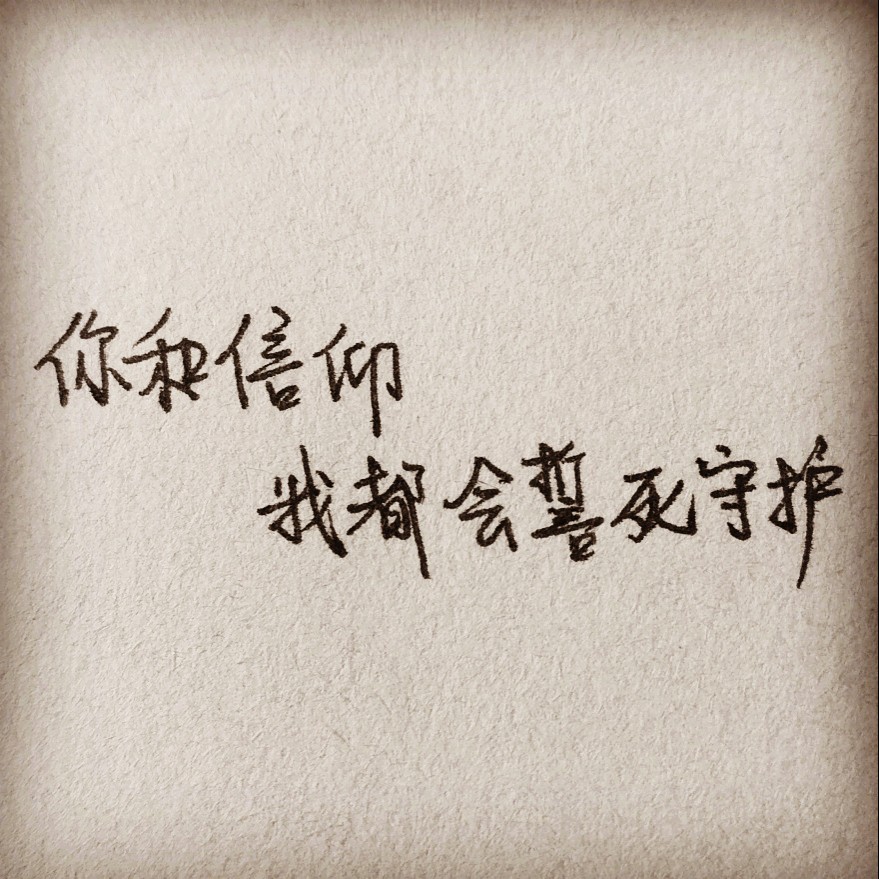 你和信仰
我都会誓死守护